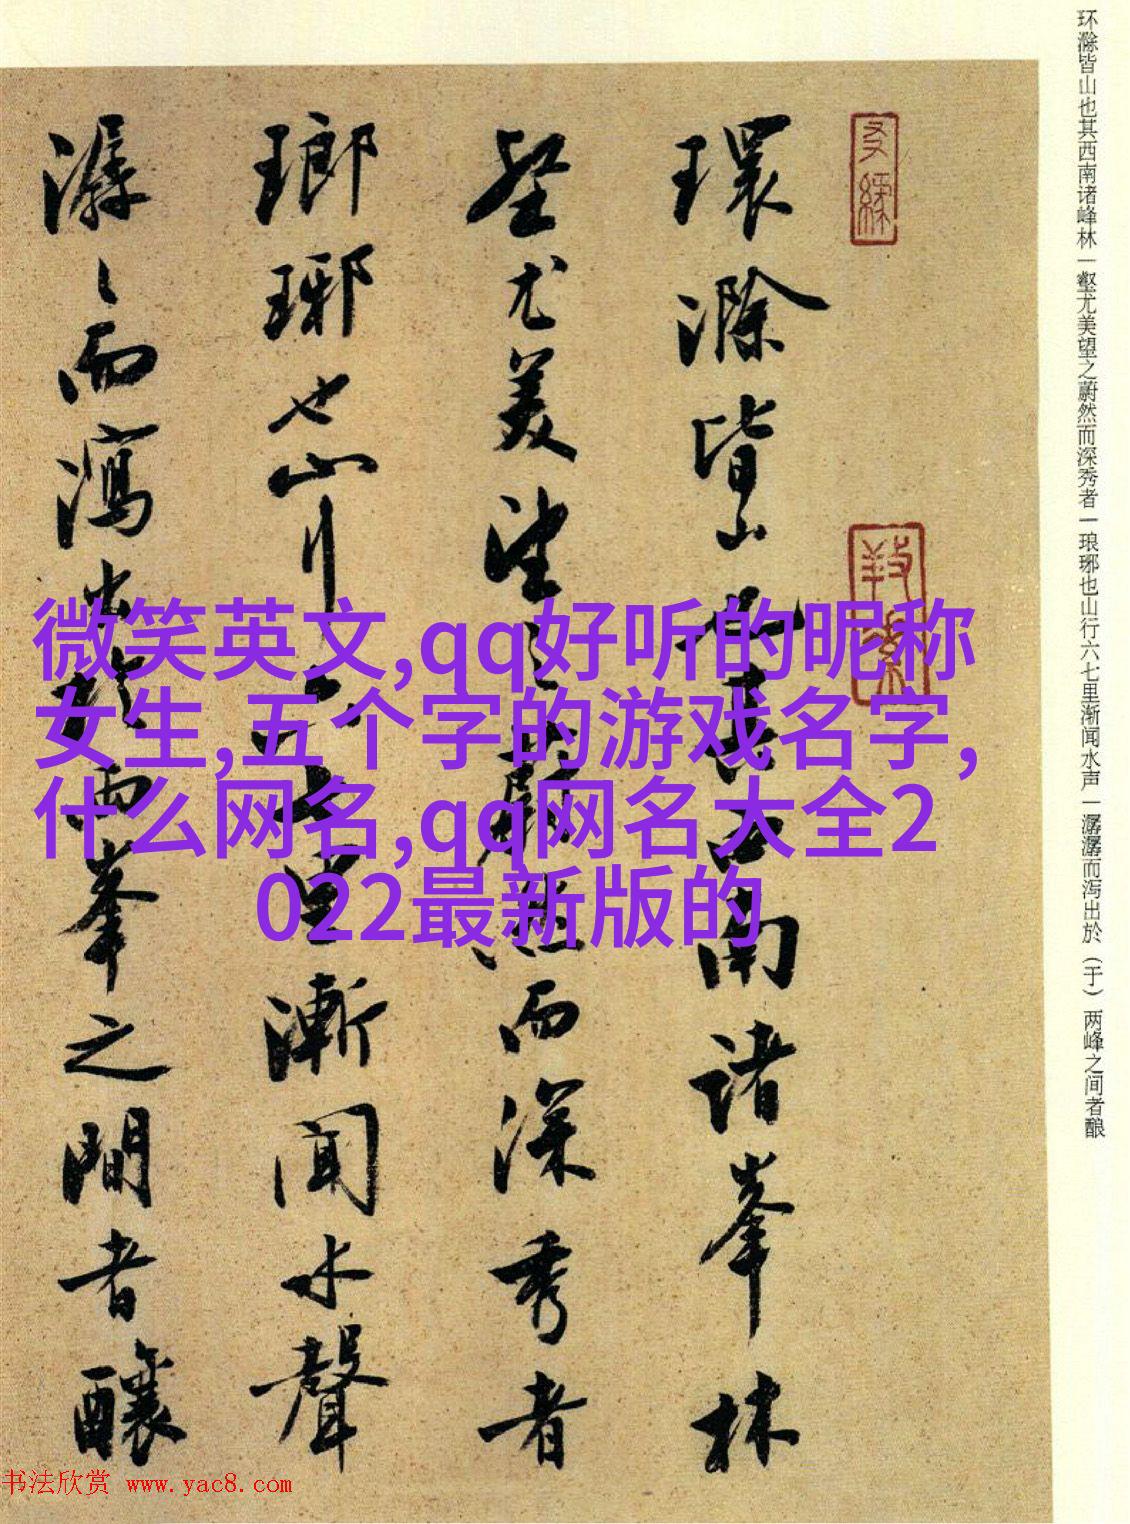 环滁皆山也其西南诸峰林一壑尤美望之蔚然而深秀者一琅琊也山行六七里渐闻水声一潺潺而泻出於（于）两峰之间者酿
環滁皆山也其西南諸峯林
壑尤美望之蔚然而深秀者
瑯琊也山行六七里漸聞水聲
潺〻而瀉出於兩峯之間者釀
微笑英文,qq好听的昵称
女生,五个字的游戏名字,
什么网名,qq网名大全2
022最新版的
书法欣赏 www.yac8.com